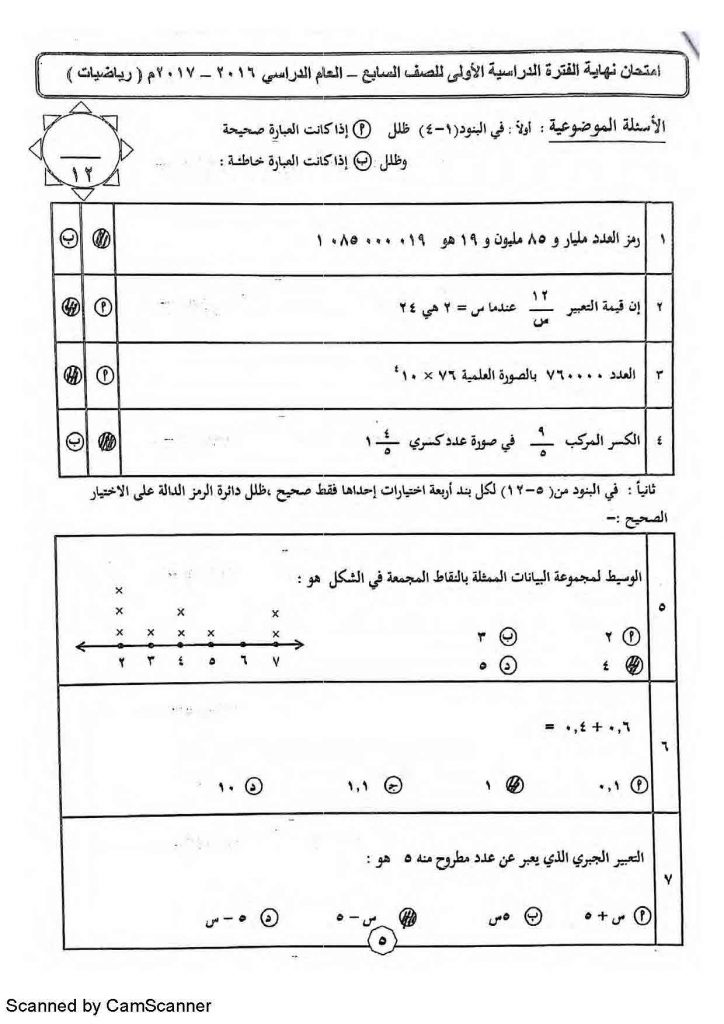 امتحان نهاية الفترة الدراسية الأولى للصف السابع – العام الدراسي ٢٠١٦ – ٢٠١٧م ( رياضيات )
الأسئلة الموضوعية : أولاً : في البنود(١-٤) ظلل أ إذا كانت العبارة صحيحة
وظلل ب إذا كانت العبارة خاطئة :
١٢
١ رمز العدد مليار و ٨٥ مليون و ١٩ هو ١٠٨٥٠٠٠٠١٩ ب
٢ إن قيمة التعبير ١٢/س عندما س = ٢ هي ٢٤ أ
٣ العدد ٧٦٠٠٠٠ بالصورة العلمية ٧٦ × ١٠⁴ أ
٤ الكسر المركب ٩/٥ في صورة عدد كسري ١ ٤/٥ ب
ثانياً : في البنود من( ٥-١٢) لكل بند أربعة اختيارات إحداها فقط صحيح ،ظلل دائرة الرمز الدالة على الاختيار
الصحيح :-
٥ الوسيط لمجموعة البيانات الممثلة بالنقاط المجمعة في الشكل هو :
أ ٢ ب ٣
٤ د ٥
×
× × ×
× × × × ×
٢ ٣ ٤ ٥ ٦ ٧
٦ ٠,٦ + ٠,٤ =
أ ٠,١ ١ ج ١,١ د ١٠
٧ التعبير الجبري الذي يعبر عن عدد مطروح منه ٥ هو :
أ س + ٥ ب ٥س س – ٥ د ٥ – س
٥
Scanned by CamScanner